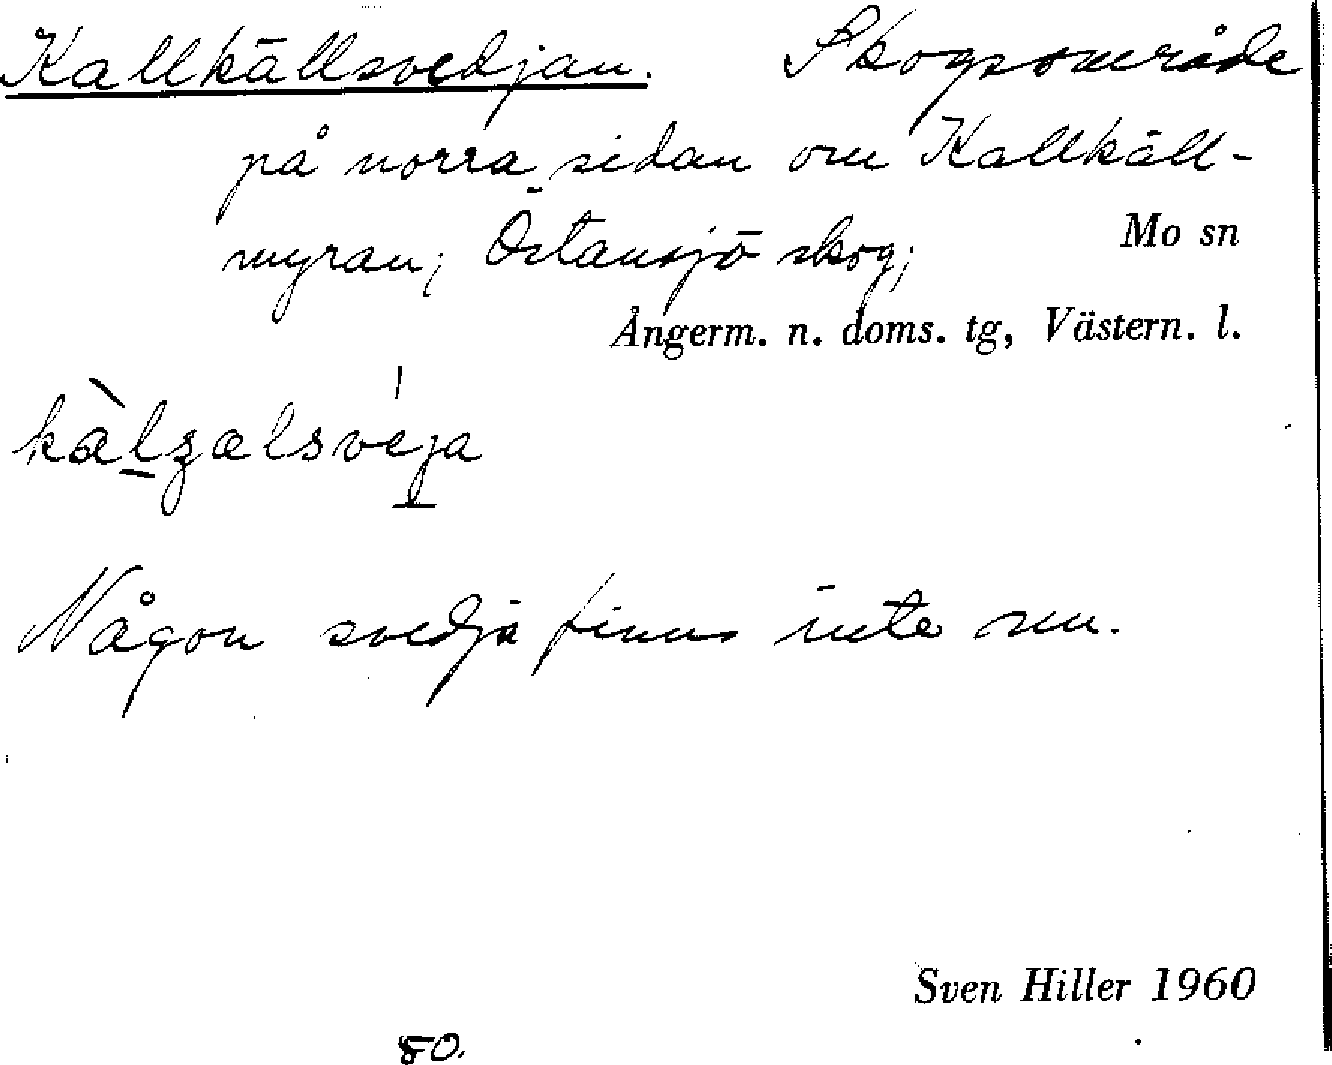 Kallkällsvedjan. Skogsområde
på norra sidan om Kallkäll-
myran; Östansjö skog; Mo sn
Ångerm. n. doms. tg, Västern. l.
Någon svedja finns inte nu.
Sven Hiller 1960
80.